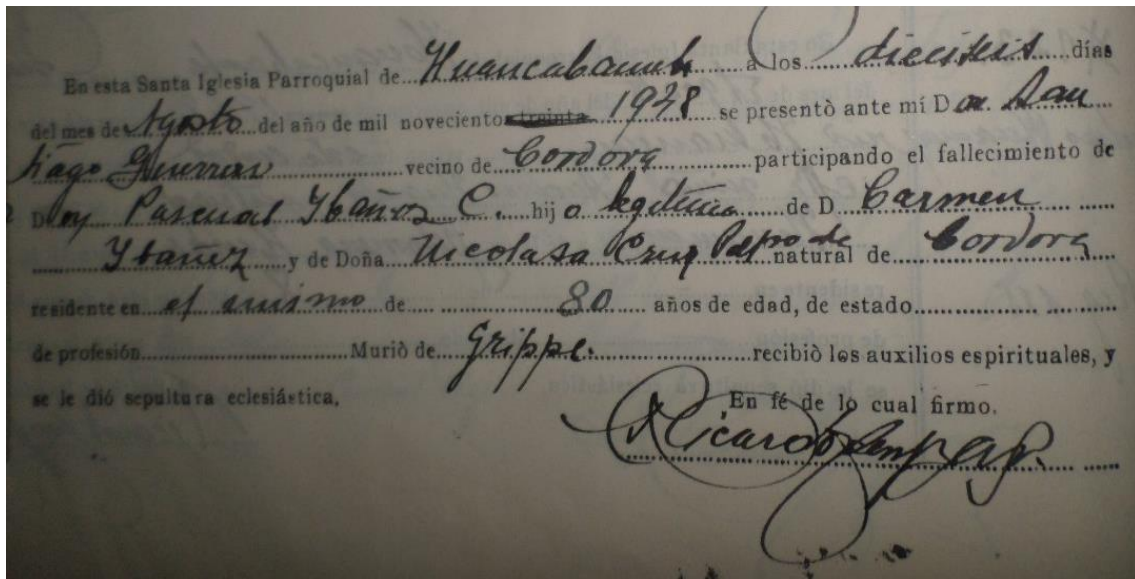 En esta Santa Iglesia Parroquial de Huancabamba a los dieciseis días
del mes de Agosto del año de mil noveciento treinta 1938 se presentò ante mí Don San
tiago Guerrero vecino de Cordova participando el fallecimiento de
Don Pascual Ybañez C. hijo legitimo de D Carmen
Ybañez y de Doña Nicolasa Cruz natural de Cordova
residente en el mismo de 80 años de edad, de estado
de profesión Muriò de Grippe. recibiò los auxilios espirituales, y
se le dió sepultura eclesiástica.
En fé de lo cual firmo.
Ricardo